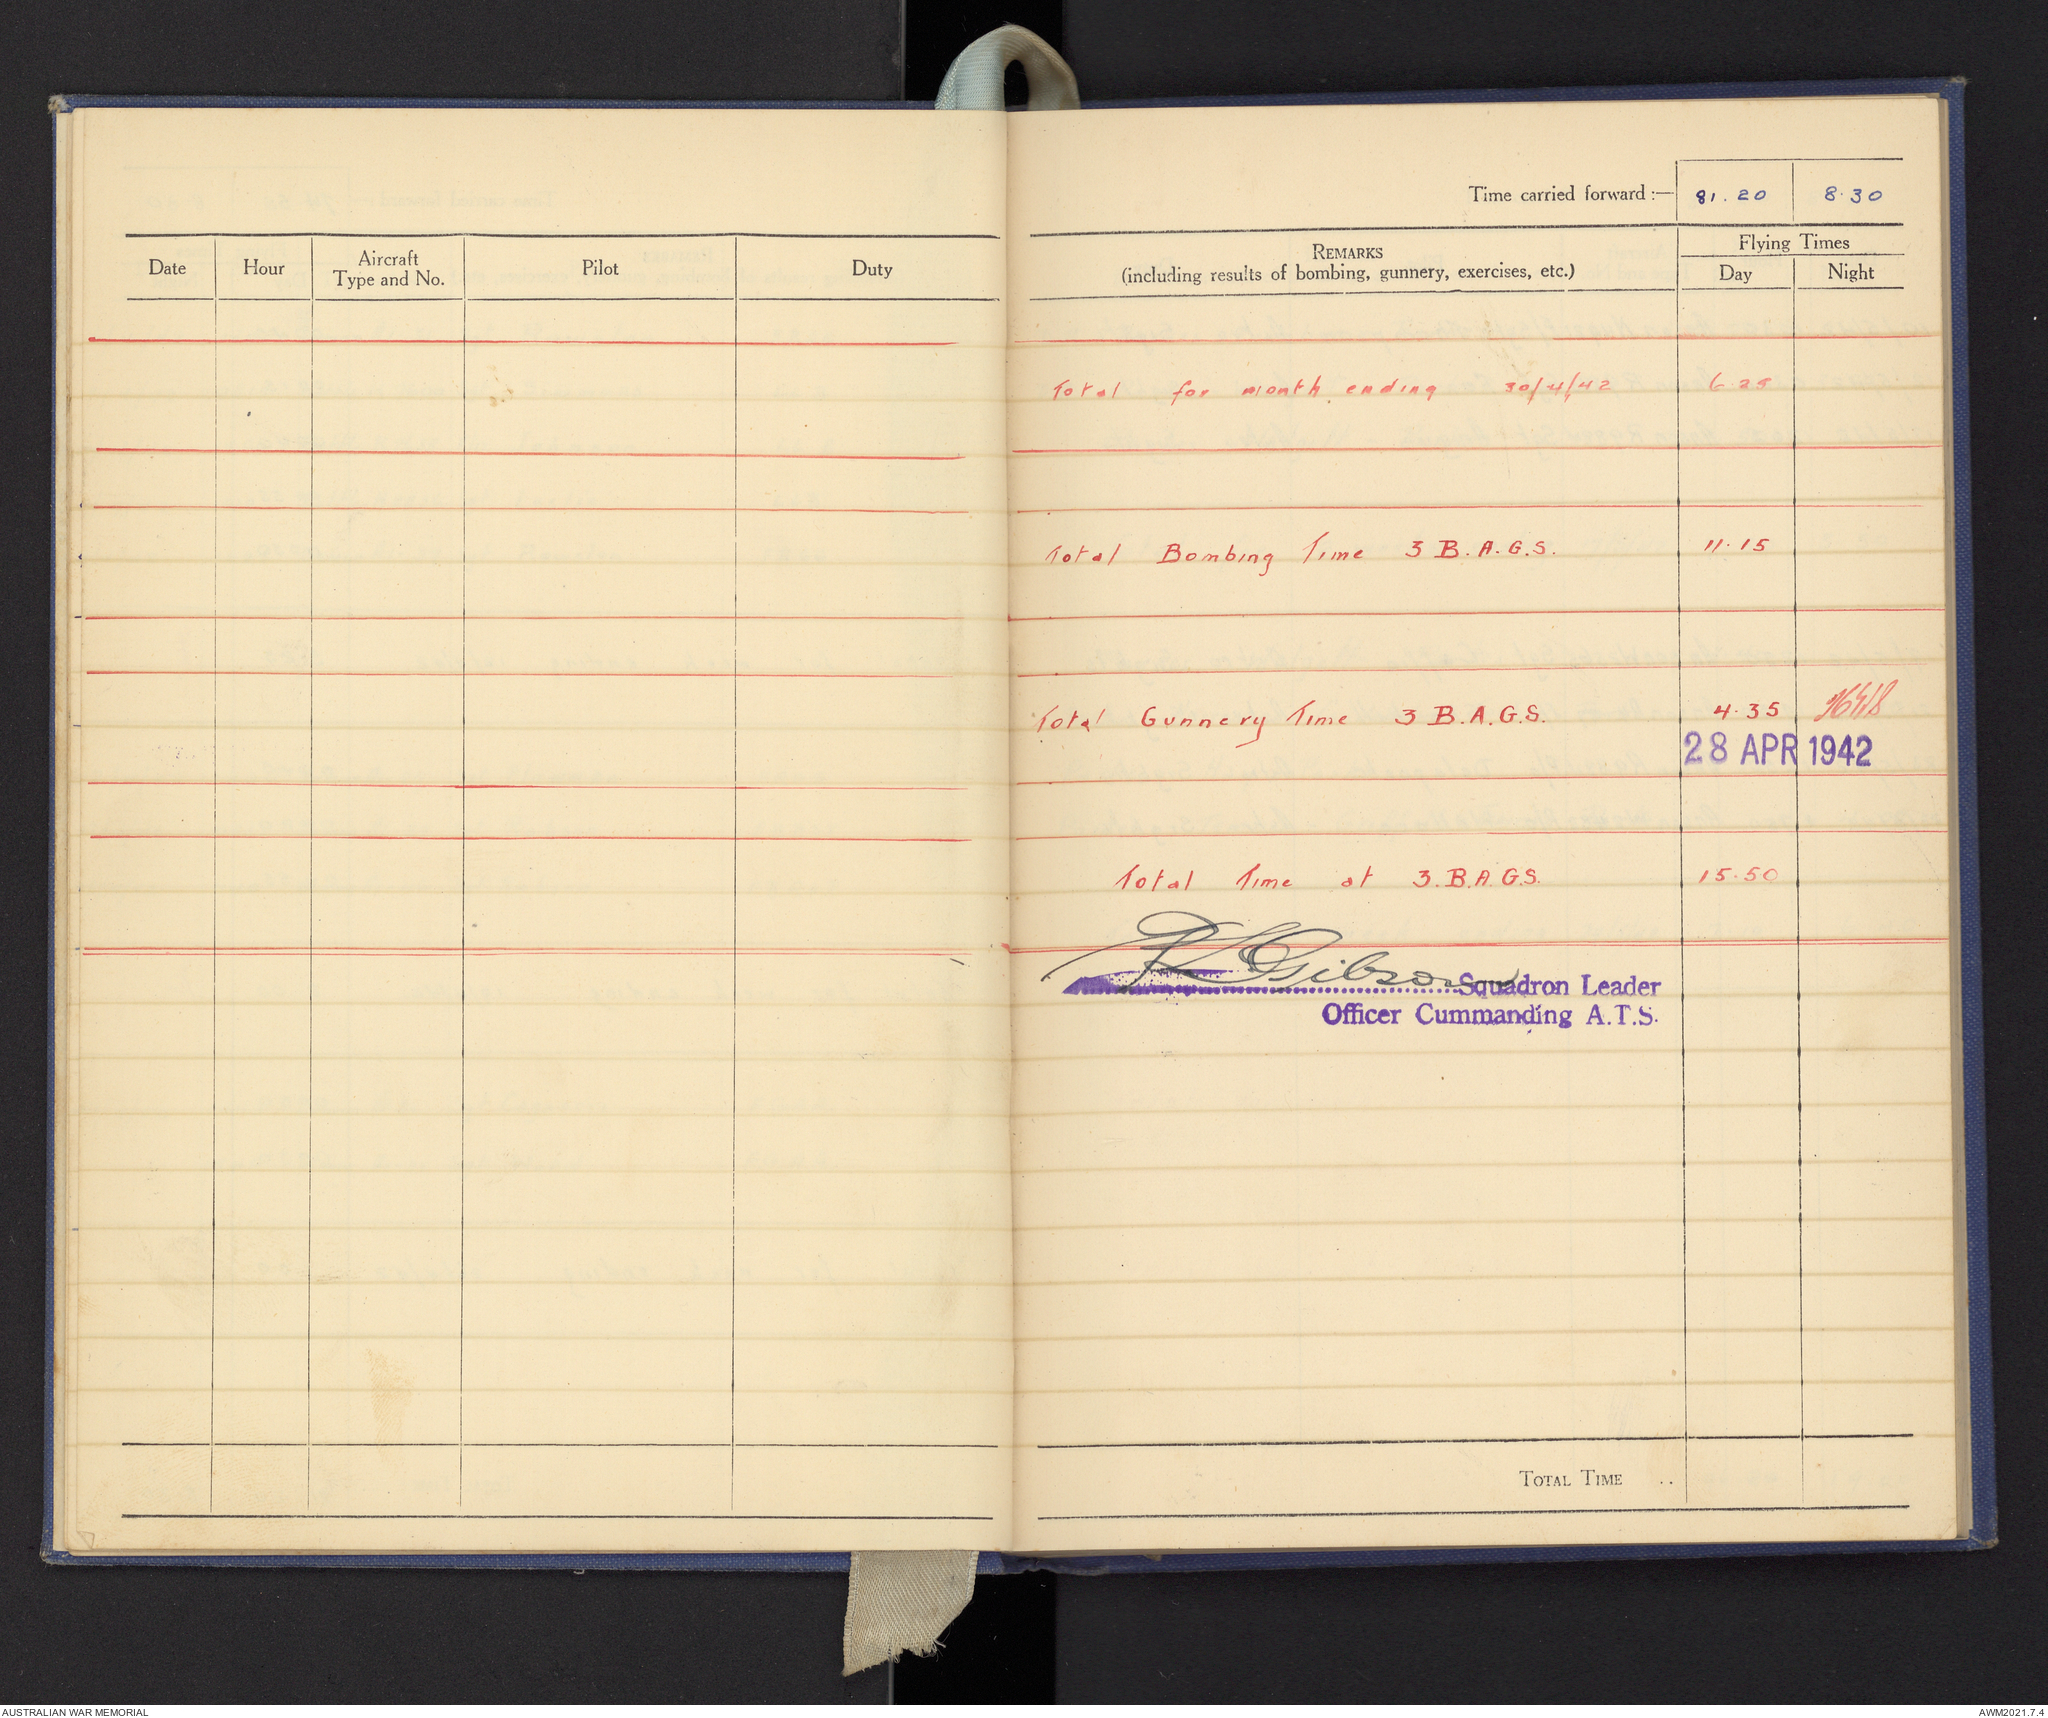 Time carried forward :— 81.20 8.30
Date Hour Aircraft Type and No. Pilot Duty
REMARKS
(including results of bombing, gunnery, exercises, etc.)
Flying Times
Day Night
Total for month ending 30/4/42 6.25
Total Bombing Time 3 B.A.G.S. 11.15
Total Gunnery Time 3 B.A.G.S. 4.35
28 APR 1942
Total Time at 3.B.A.G.S. 15.50
Gibson
Squadron Leader
Officer Cummanding A.T.S.
TOTAL TIME ..
AUSTRALIAN WAR MEMORIAL
AWM2021.7.4